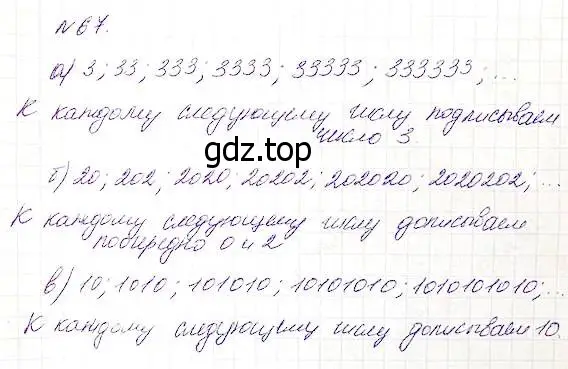 №67.
а) 3; 33; 333; 3333; 33333; 333333; ...
К каждому следующему числу подписываем
число 3
gdz.top
б) 20; 202; 2020; 20202; 202020; 2020202; ...
К каждому следующему числу дописываем
поочередно 0 и 2
в) 10; 1010; 101010; 10101010; 1010101010; ...
К каждому следующему числу дописываем 10.